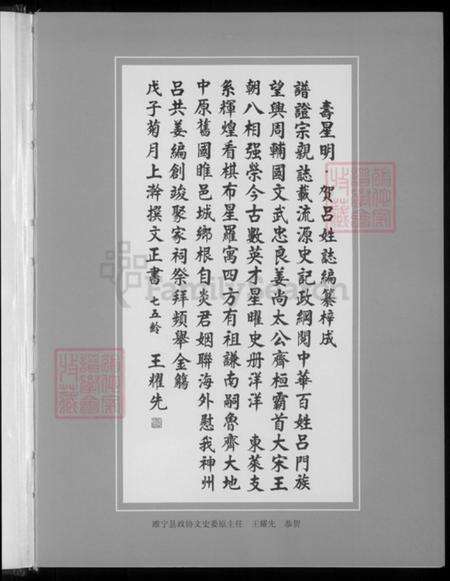 壽星明·賀吕姓誌編纂梓成
譜證宗親誌載流源史記政綱閱中華百姓吕門族
望興周輔國文武忠良姜尚太公齊桓霸首大宋王
朝八相强榮今古數英才星曜史册洋洋 東萊支
系輝煌看棋布星羅寓四方有祖謙南嗣魯齊大地
中原舊國睢邑城鄉根自炎君姻聯海外慰我神州
吕共姜編創竣聚家祠祭拜頻舉金觴
戊子菊月上澣撰文正書 七五齡 王耀先
睢宁县政协文史委原主任 王耀先 恭贺
FamilySearch